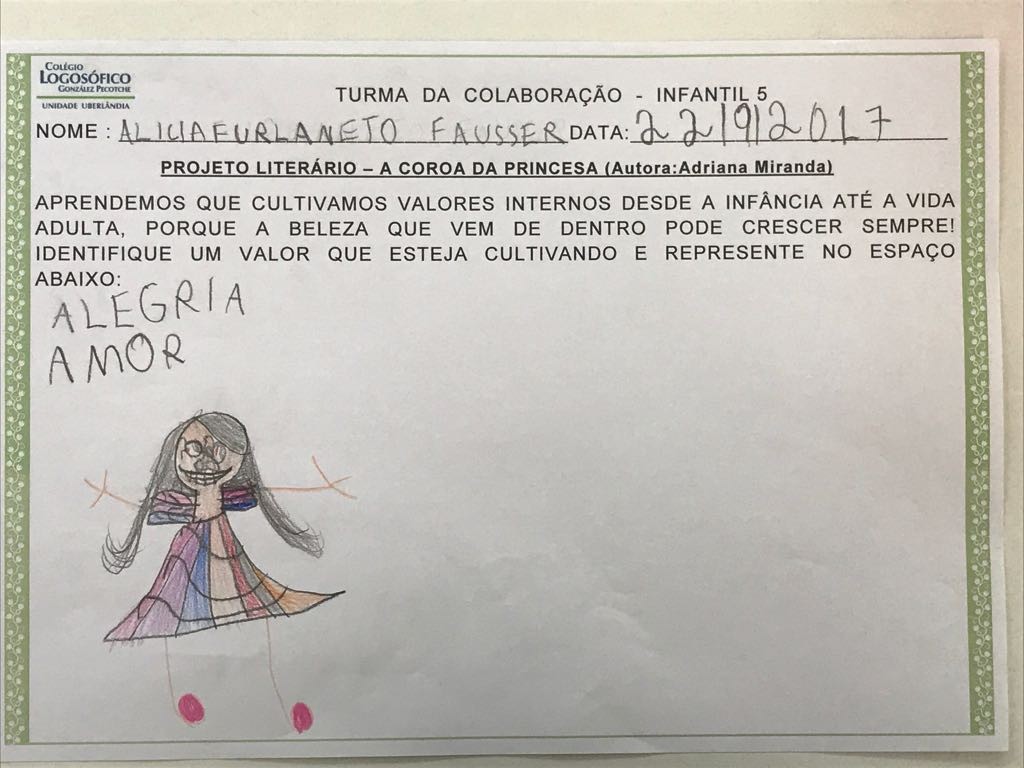 COLÉGIO
LOGOSÓFICO
GONZÁLEZ PECOTCHE
UNIDADE UBERLÂNDIA
TURMA DA COLABORAÇÃO - INFANTIL 5
NOME : ALICIA FURLANETO FAUSSER DATA: 22/9/2017
PROJETO LITERÁRIO – A COROA DA PRINCESA (Autora:Adriana Miranda)
APRENDEMOS QUE CULTIVAMOS VALORES INTERNOS DESDE A INFÂNCIA ATÉ A VIDA
ADULTA, PORQUE A BELEZA QUE VEM DE DENTRO PODE CRESCER SEMPRE!
IDENTIFIQUE UM VALOR QUE ESTEJA CULTIVANDO E REPRESENTE NO ESPAÇO
ABAIXO:
ALEGRIA
AMOR